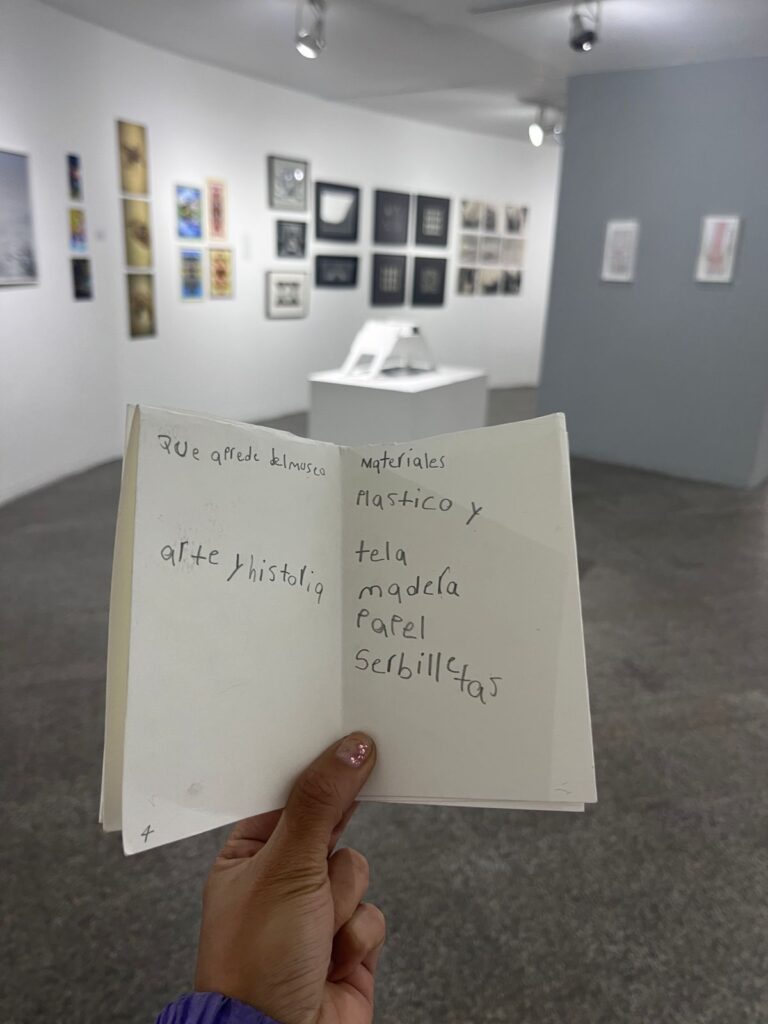 Que aprede delmuseo
arte y historia
4
Materiales
Plastico y
tela
madera
Papel
Serbilletas